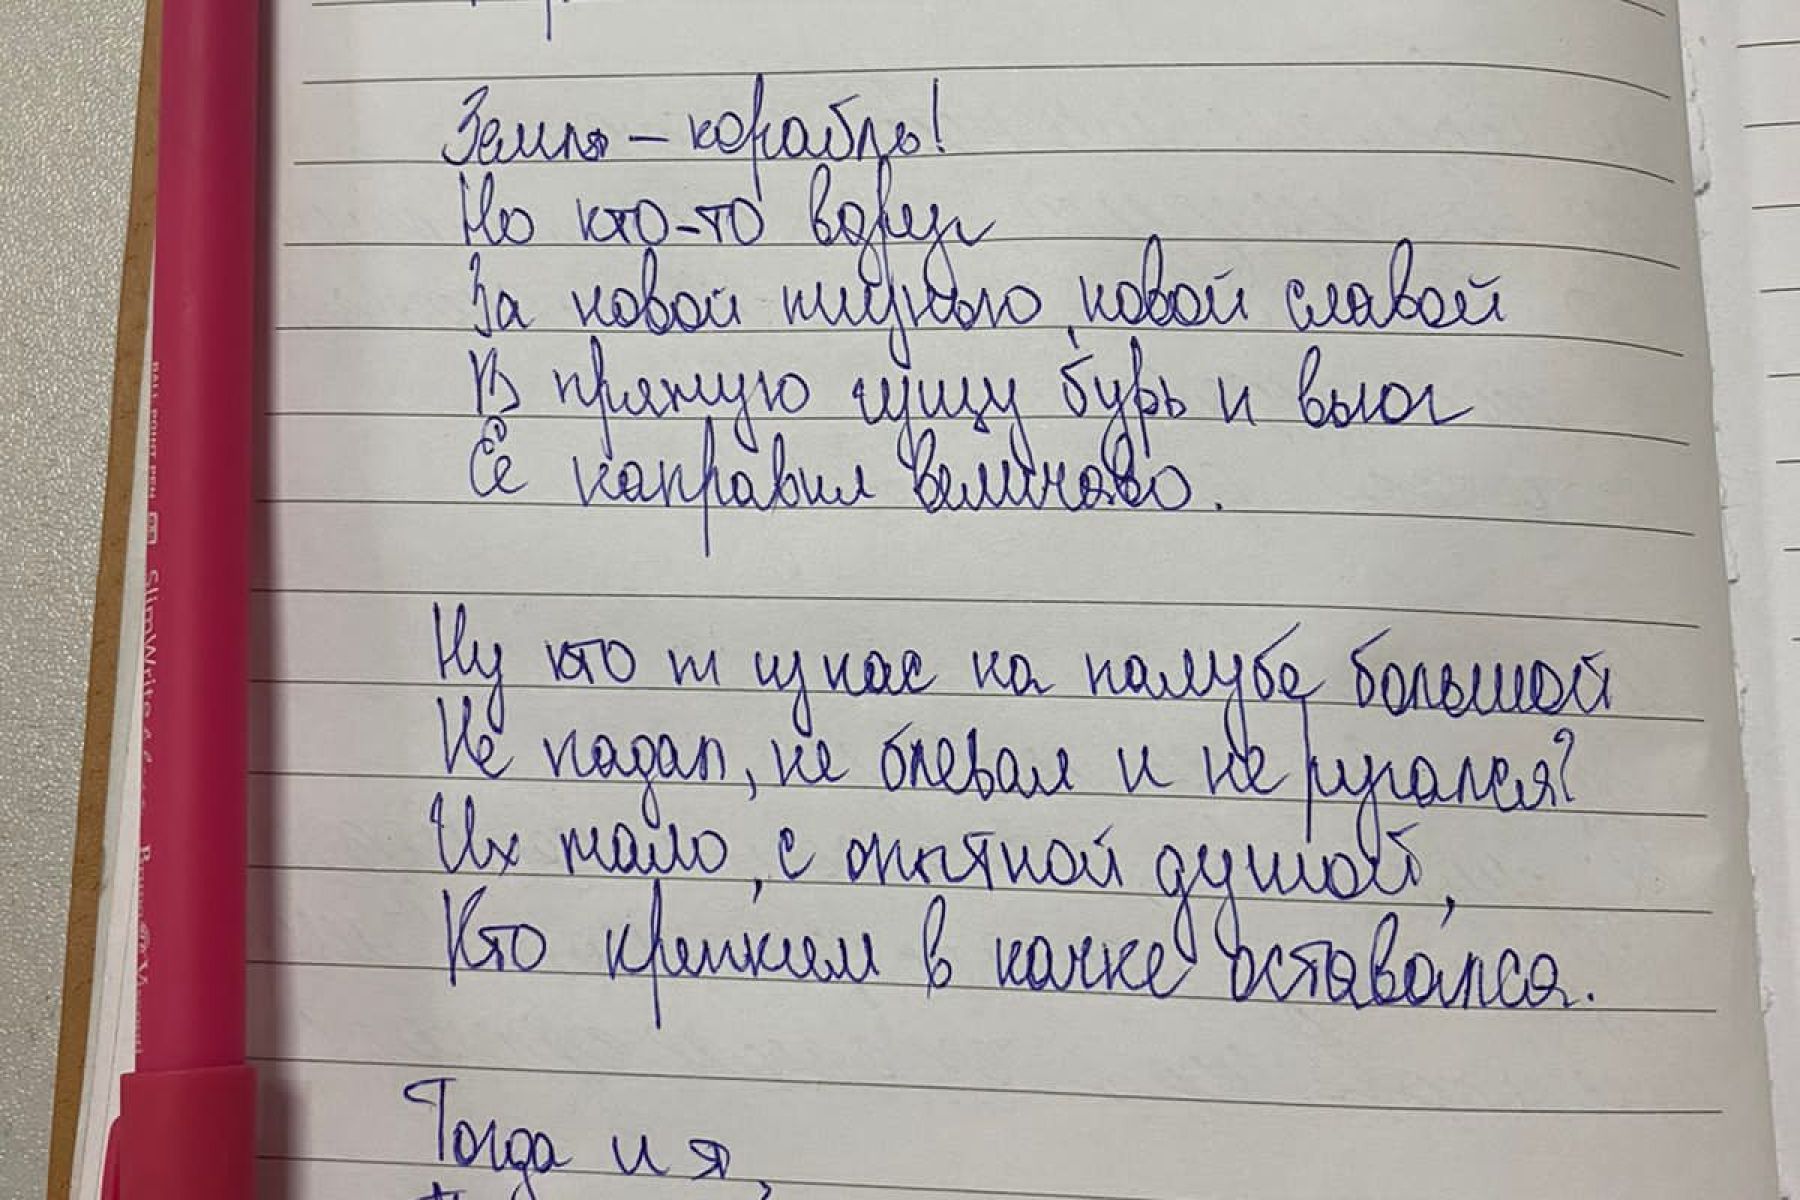 Земля – корабль!
Но кто-то вдруг
За новой жизнью, новой славой
В прямую гущу бурь и вьюг
Ее направил величаво.
Ну кто ж из нас на палубе большой
Не падал, не блевал и не ругался?
Их мало, с опытной душой,
Кто крепким в качке оставался.
Тогда и я,
BALL POINT PEN
SlimWrite